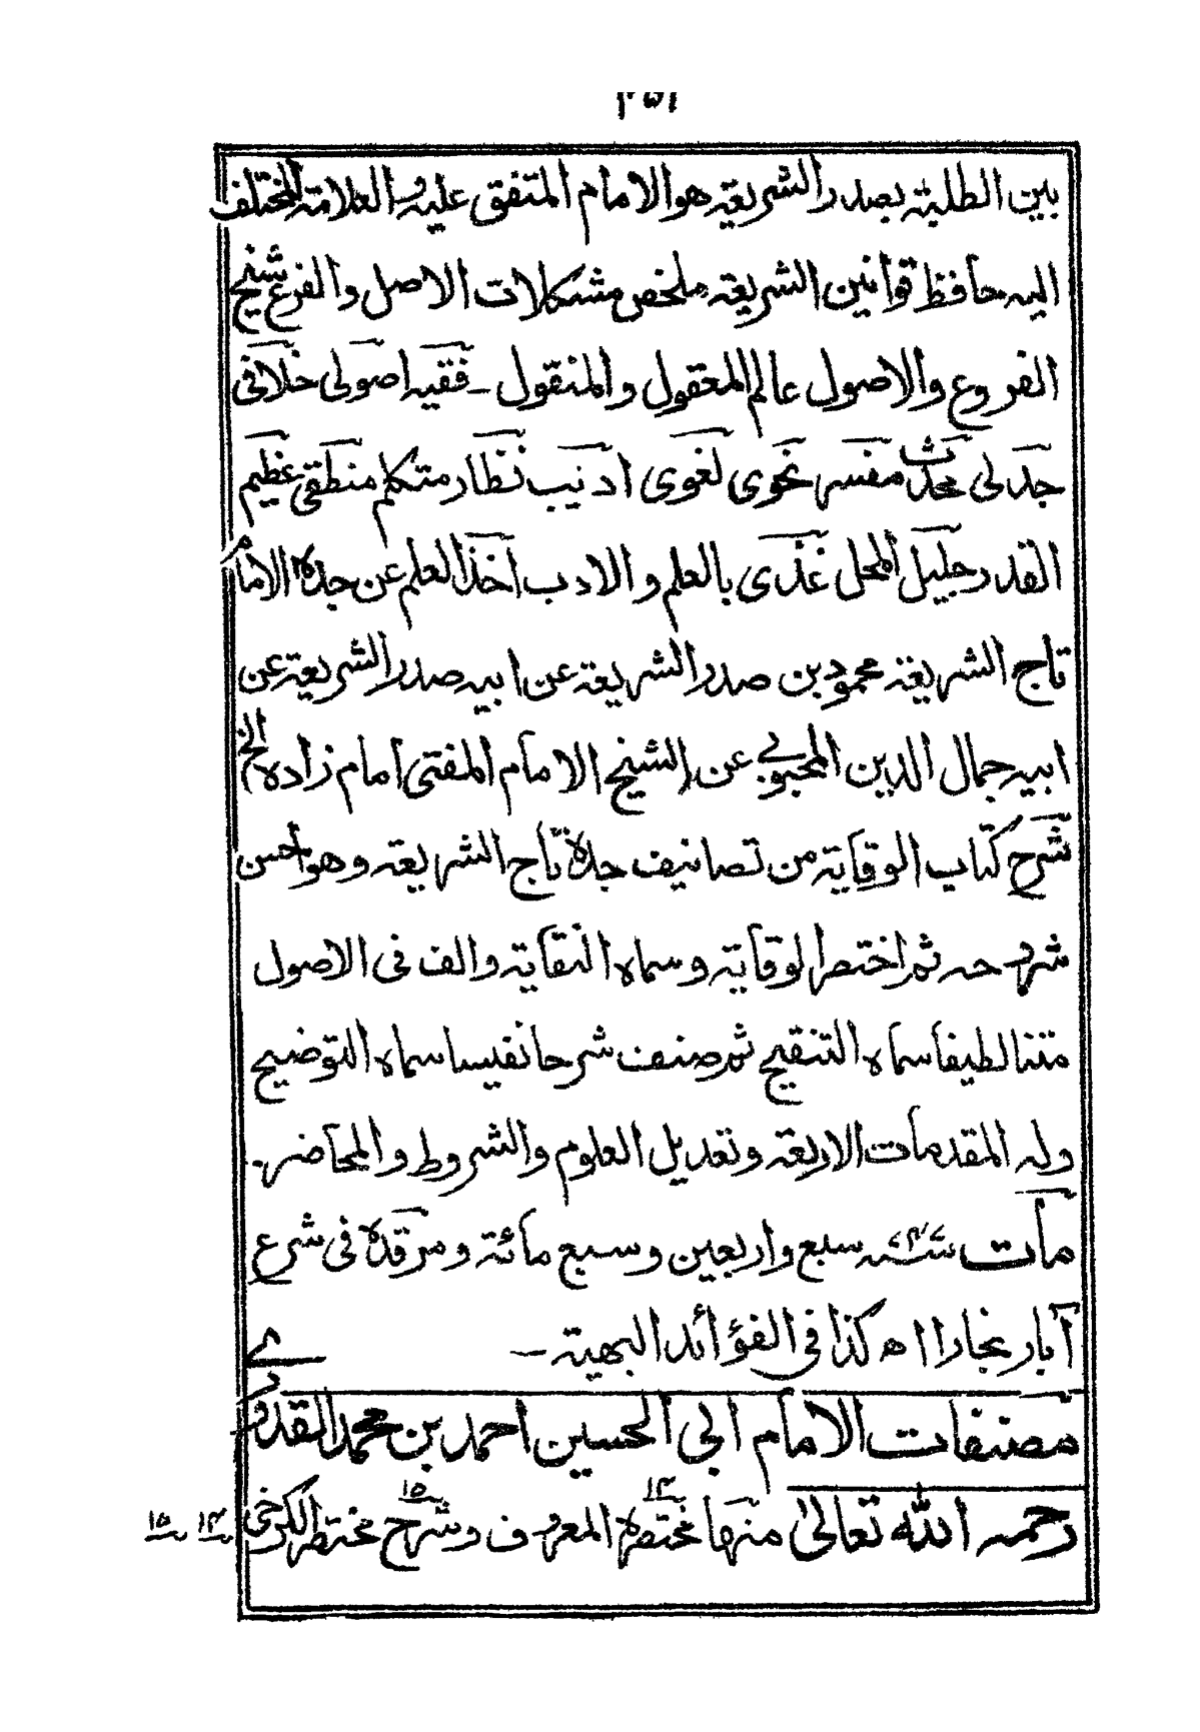 ٢٥١
بين الطلبة بصدر الشريعة هو الامام المتفق عليه و العلامة المختلف
اليه حافظ قوانين الشريعة ملخص مشكلات الاصل والفرع شيخ
الفروع والاصول عالم المعقول والمنقول ـ فقيه اصولى خلافى
جدلى محدث مفسر نحوى لغوى اديب نظار متكلم منطقى عظيم
القدر جليل المحل غذى بالعلم والادب اخذ العلم عن جده الامام
تاج الشريعة محمود بن صدر الشريعة عن ابيه صدر الشريعة عن
ابيه جمال الدين المحبوبى عن الشيخ الامام المفتى امام زاده الخ
شرح كتاب الوقاية من تصانيف جده تاج الشريعة وهو احسن
شروحه ثم اختصر الوقاية وسماه النقاية والف فى الاصول
متنا لطيفا سماه التنقيح ثم صنف شرحا نفيسا سماه التوضيح
وله المقدمات الاربعة وتعديل العلوم والشروط والمحاضر۔
مات سنة سبع واربعين وسبع مائة ومرقده فى شرع
آبار بخارا اھ كذا فى الفوائد البهية ـ
مصنفات الامام ابى الحسين احمد بن محمد القدورى
رحمه الله تعالىٰ منها مختصره المعروف وشرح مختصر الكرخى
١٤ ١٥